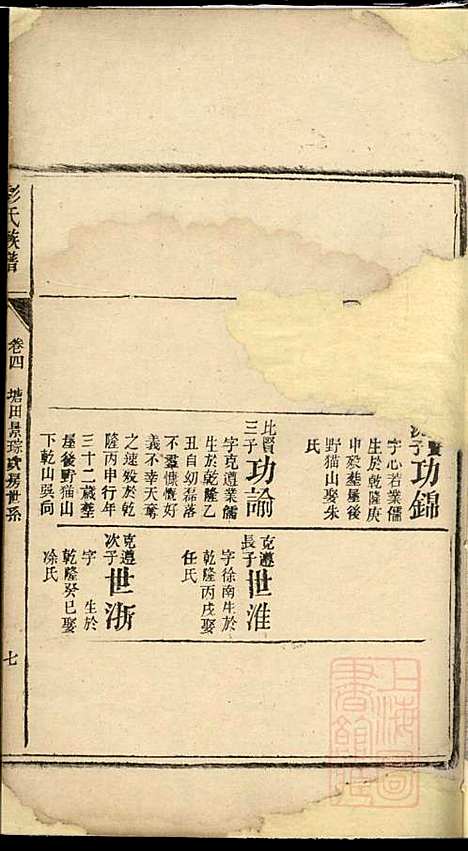 功錦
次子
字心若業儒
生於乾隆庚
申歿塟屋後
野猫山娶朱
氏
比賢
三子
功論
字克遵業儒
生於乾隆乙
丑自幼磊落
不羣慷慨好
義不幸天奪
之速歿於乾
隆丙申行年
三十二歲塟
屋後野猫山
下乾山吳向
克遵
長子
世淮
字徐南生於
乾隆丙戌娶
任氏
克遵
次子
世浙
字　生於
乾隆癸巳娶
凃氏
彭氏族譜
卷四
塘田景琮武房世系
七
上海圖書館藏